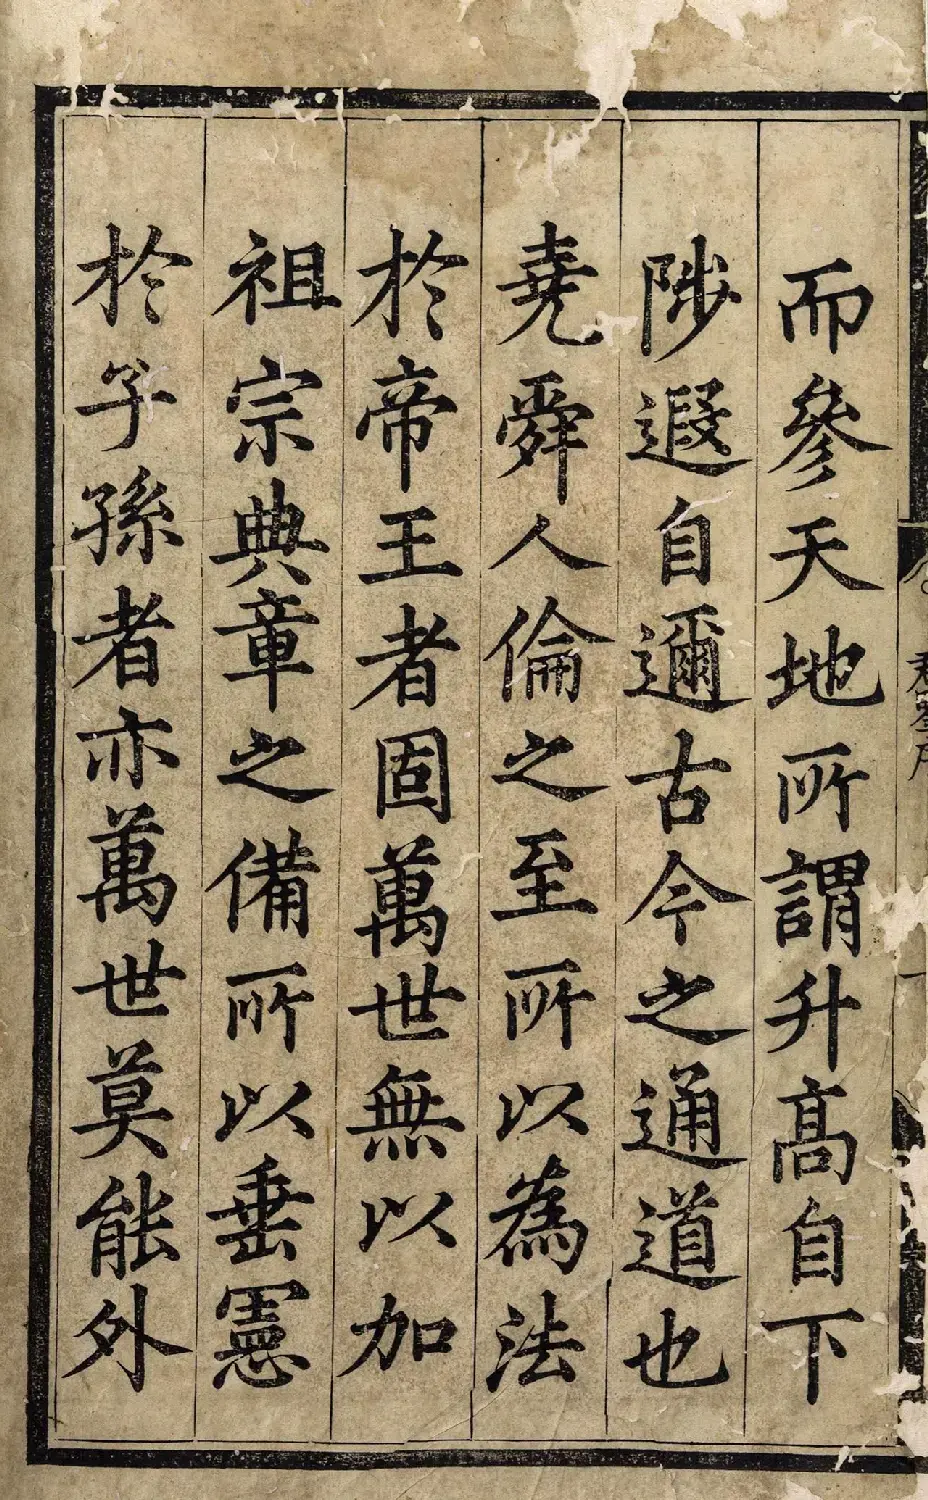 而參天地所謂升高自下
陟遐自邇古今之通道也
堯舜人倫之至所以為法
於帝王者固萬世無以加
祖宗典章之備所以垂憲
於子孫者亦萬世莫能外